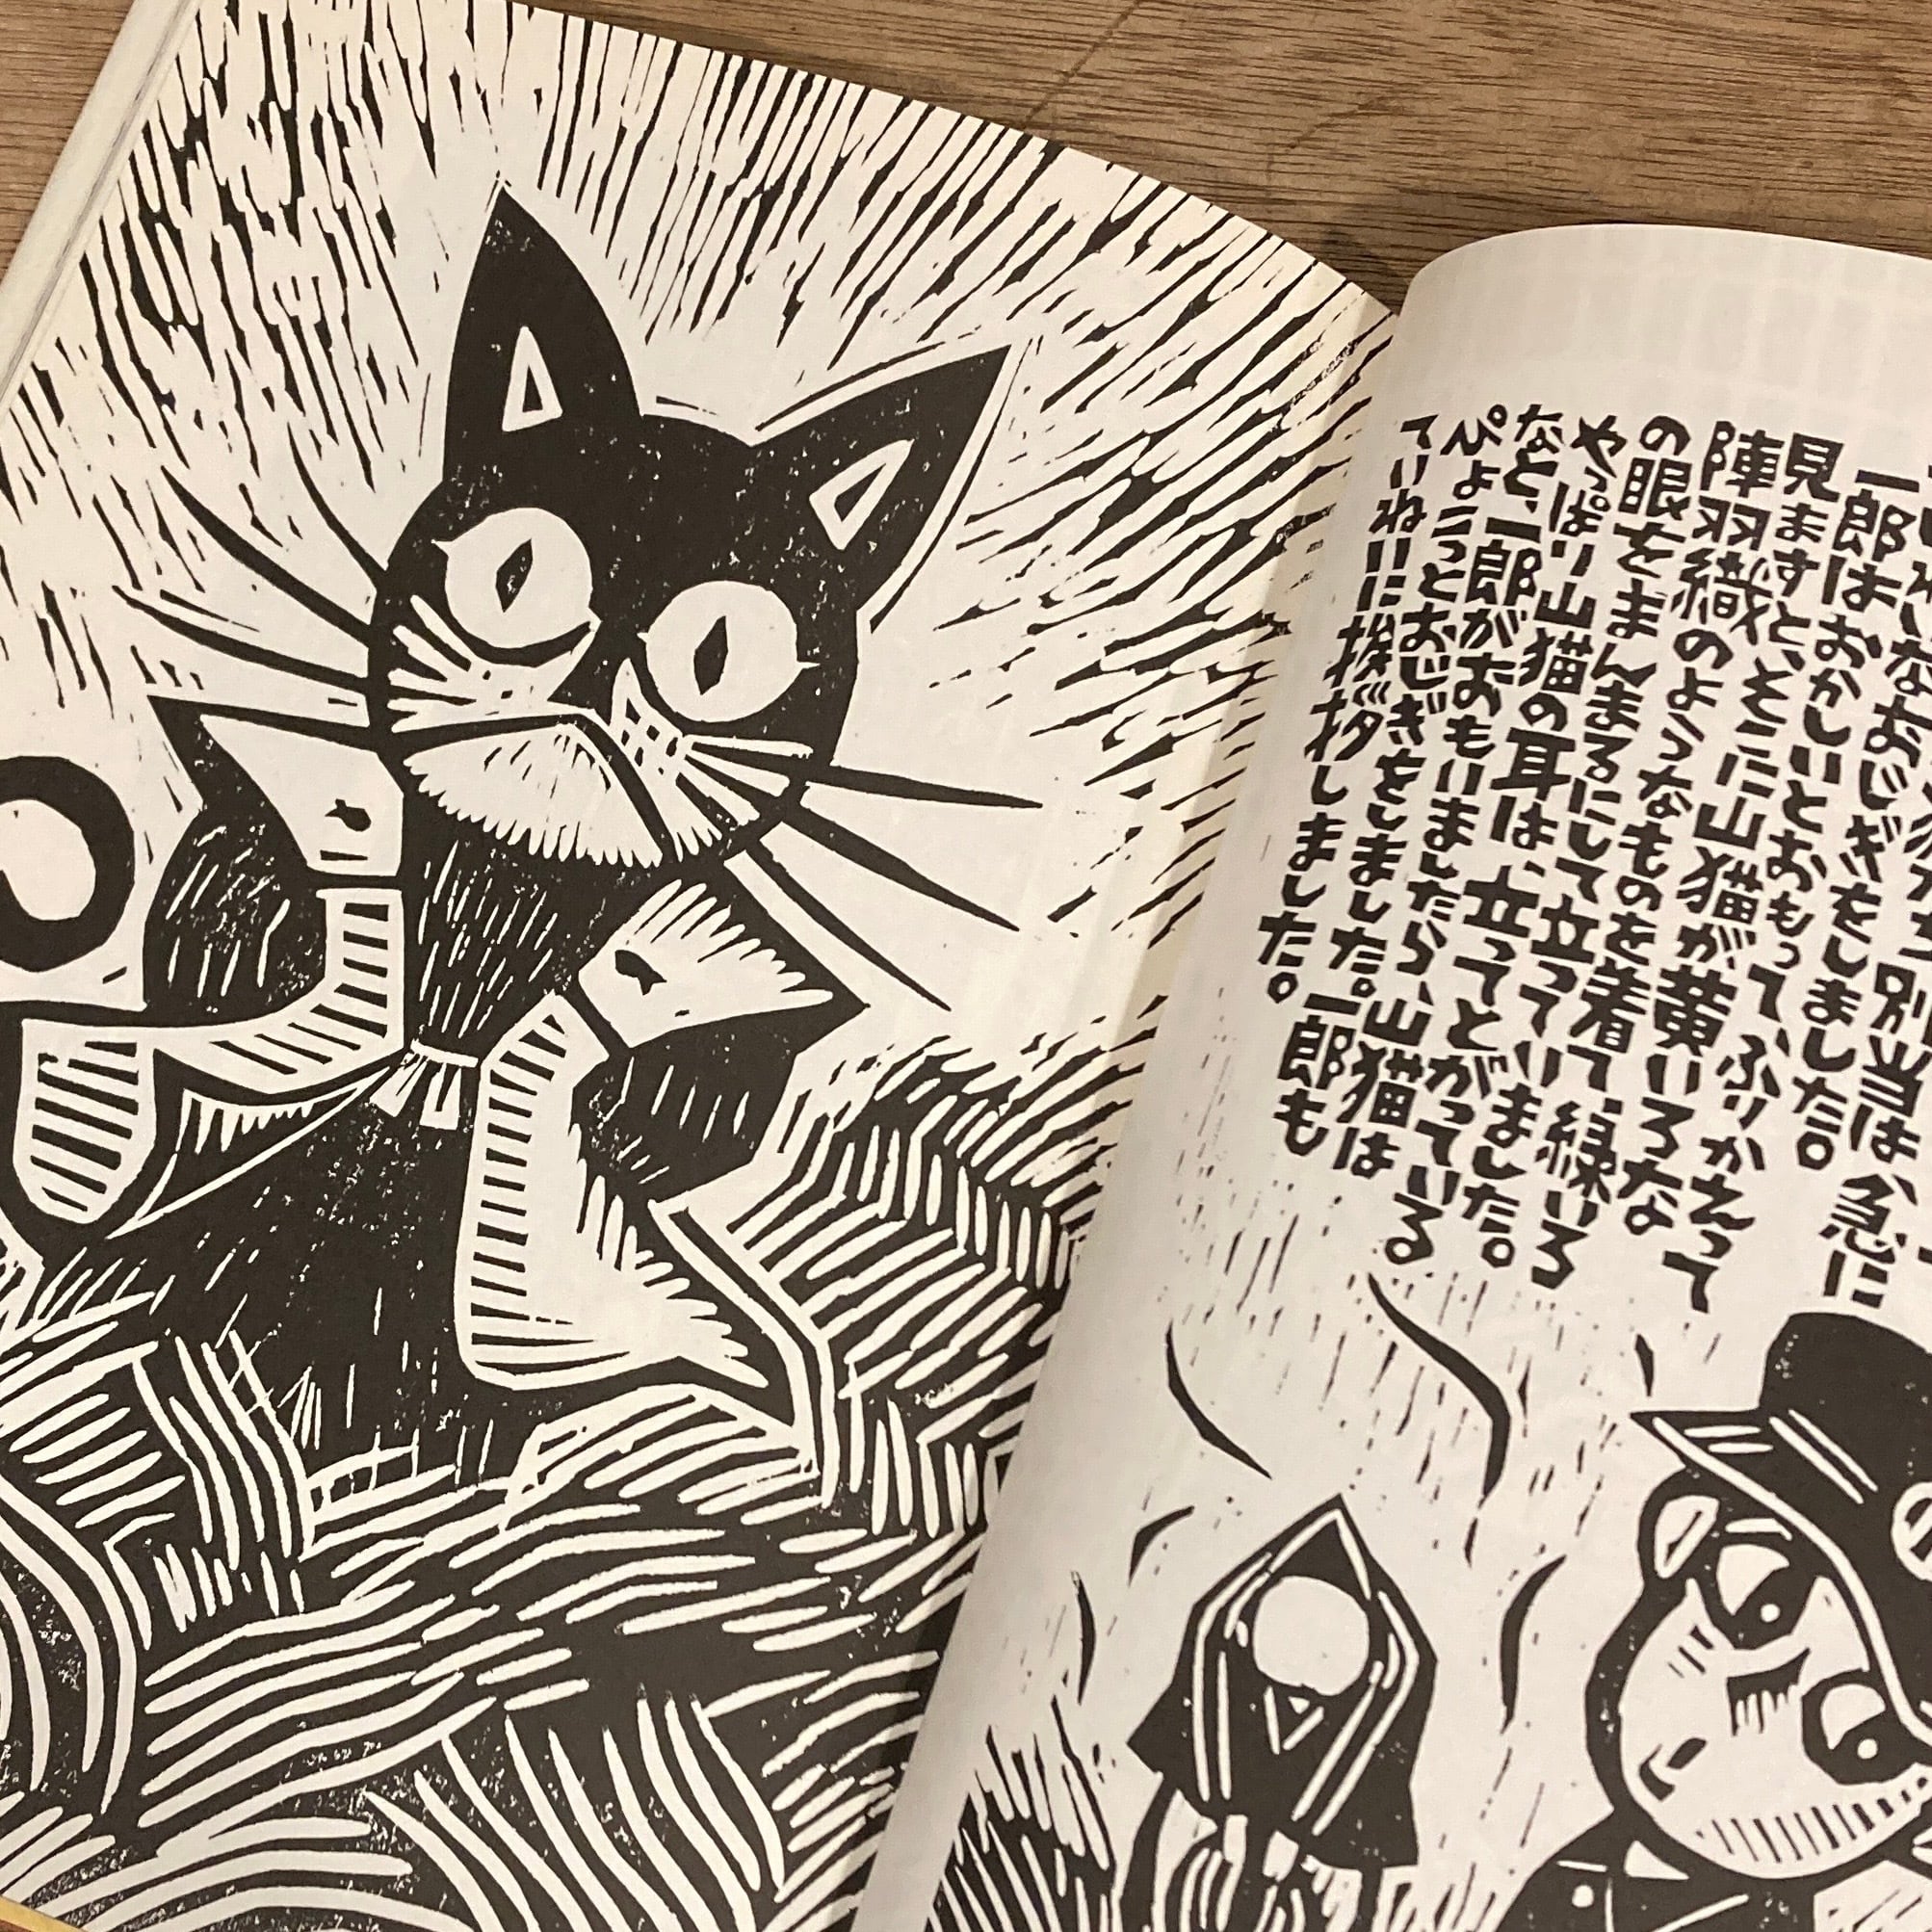 別当は、急に
ねいなおじぎをしました。
一郎はおかしいとおもって、ふりかえって
見ますと、そこに山猫が、黄いろな
陣羽織のようなものを着て、緑いろ
の眼をまんまるにして立っていました。
やっぱり山猫の耳は、立ってとがっている
なと、一郎がおもいましたら、山猫は
ぴょこっとおじぎをしました。一郎も
ていねいに挨拶しました。